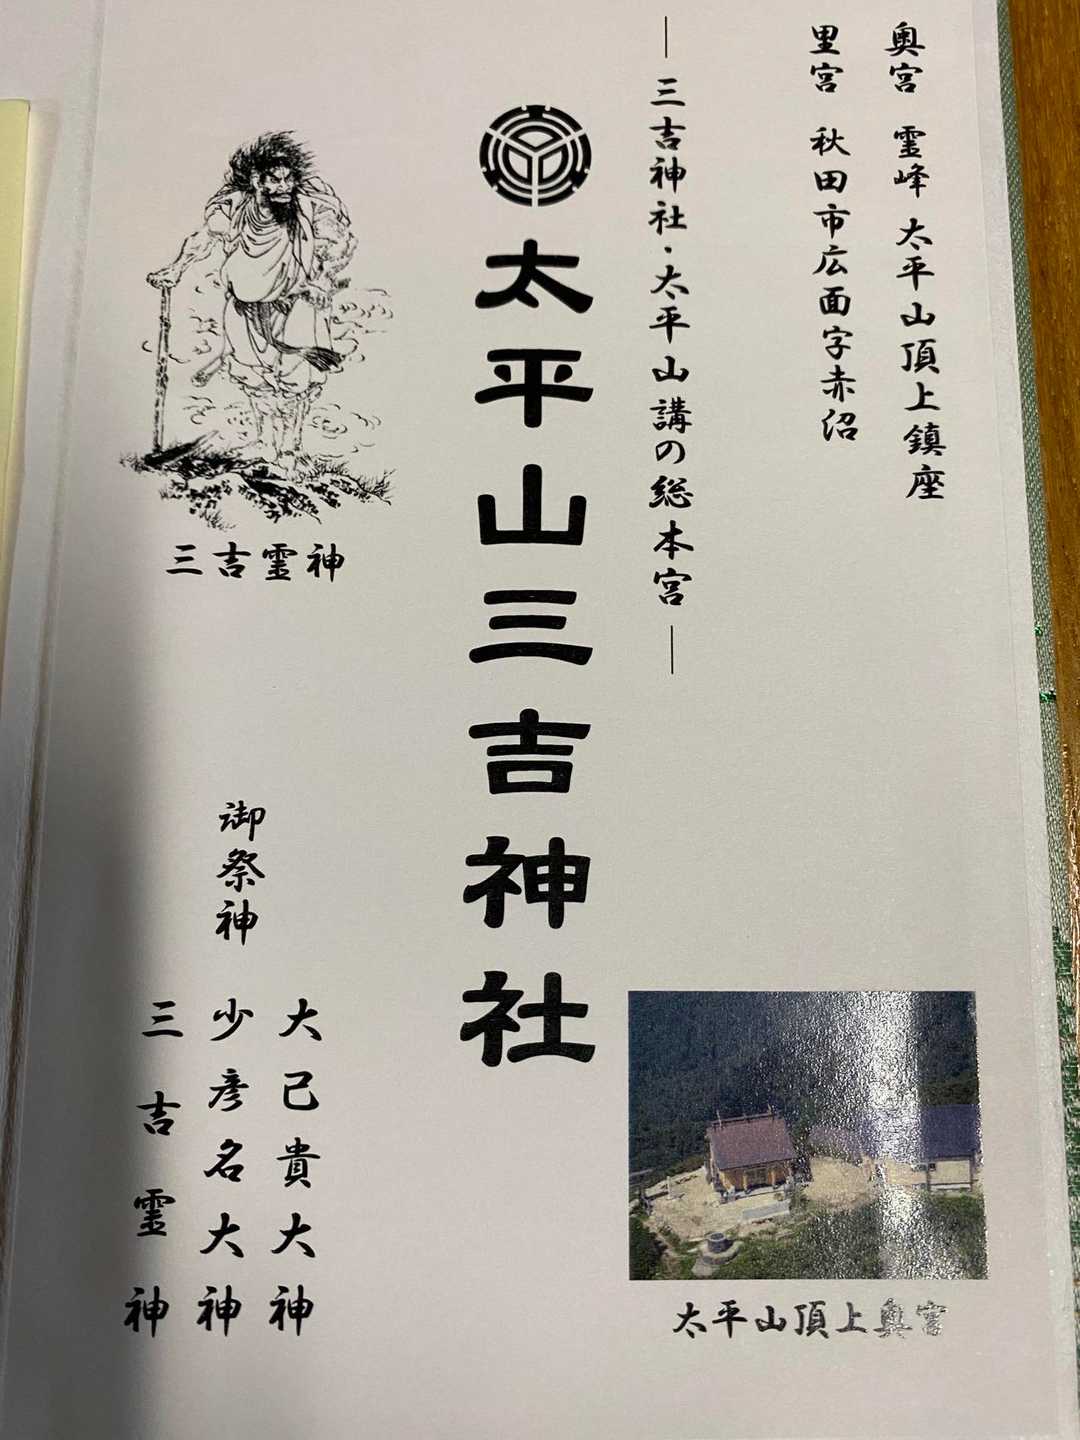 奥宮 霊峰 太平山頂上鎮座
里宮 秋田市広面字赤沼
― 三吉神社・太平山講の総本宮 ―
太平山三吉神社
三吉霊神
御祭神
大己貴大神
少彦名大神
三吉霊神
太平山頂上奥宮